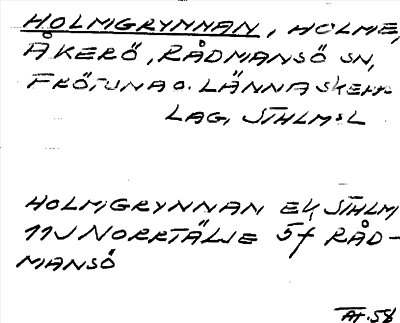 HOLMGRYNNAN, HOLME,
ÅKERÖ, RÅDMANSÖ SN,
FRÖTUNA O. LÄNNA SKEPP
LAG, STHLM:L
HOLMGRYNNAN EK, STHLM
11J NORRTÄLJE 5f RÅD-
MANSÖ
AT. 58